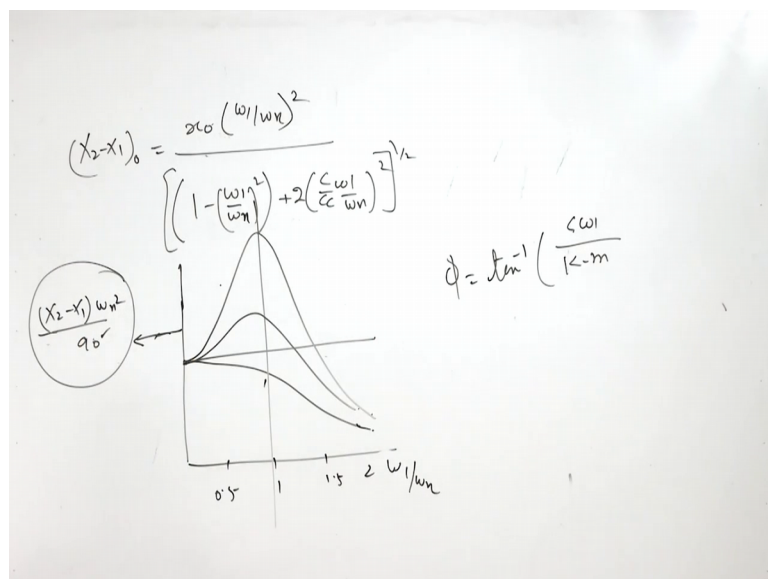 (X₂-X₁)₀ = x₀ (ω1/ωn)² / [((1-(ω1/ωn)²) + 2(C/Cc ω1/ωn)²]^1/2
φ = tan⁻¹ ( cω1 / K-m
(X₂-X₁) ωn² / a₀
0.5 1 1.5 2 ω1/ωn
1